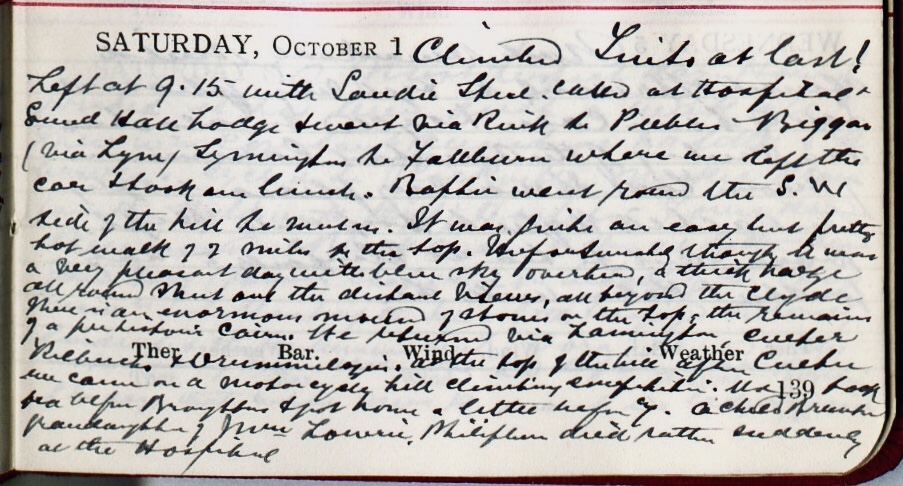 SATURDAY, OCTOBER 1 Climbed Tinto at last!
Left at 9.15 with Sandie Shiel. Called at Hospital &
Lodge & went via to Peebles Biggar
(via Lyne) Symington to Fallburn where we left the
car & took our lunch. went round the S.W
side of the hill to meet us. It was quite an easy but pretty
hot walk of 2 miles to the top. Unfortunately though it was
a very pleasant day with blue sky overhead, a thick haze
all round shut out the distant views, all beyond the Clyde
There is an enormous mound of stones on the top, the remains
of a prehistoric cairn. We returned via Lamington Culter
Ther. Bar. Wind Weather
Kilbucho & Drummelzier. at the top of the hill after Culter
we came on a motorcycle hill climbing competition. We took
139
tea before Broughton & got home a little before 7. a child
granddaughter of Wm Lowrie, died rather suddenly
at the Hospital